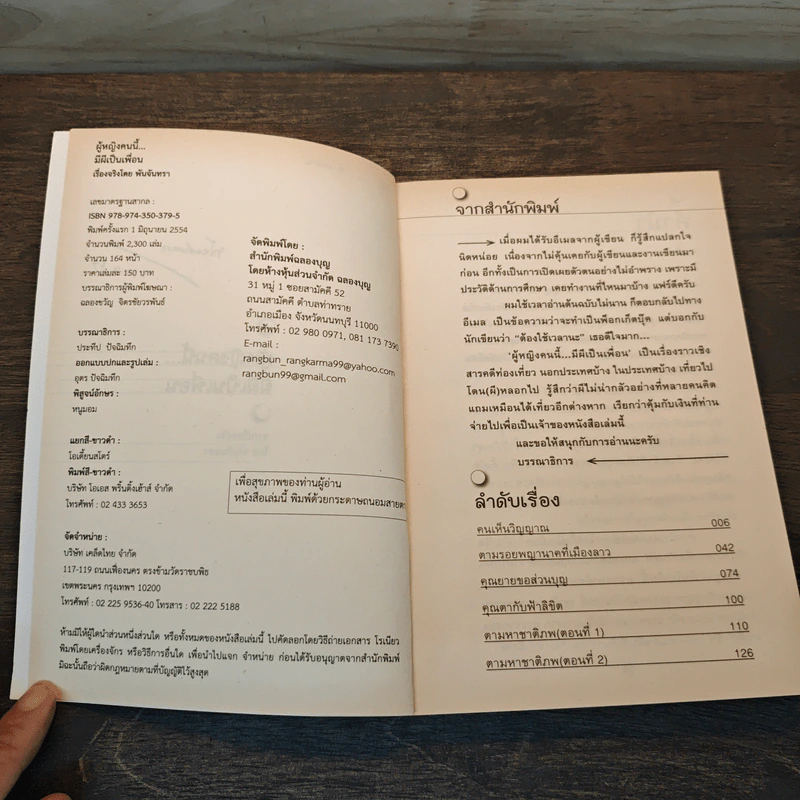 ผู้หญิงคนนี้...
มีผีเป็นเพื่อน
เรื่องจริงโดย พันจันทรา
เลขมาตรฐานสากล :
ISBN 978-974-350-379-5
พิมพ์ครั้งแรก 1 มิถุนายน 2554
จำนวนพิมพ์ 2,300 เล่ม
จำนวน 164 หน้า
ราคาเล่มละ 150 บาท
บรรณาธิการผู้พิมพ์โฆษณา :
ฉลองขวัญ จิตรชัยวรพันธ์
บรรณาธิการ :
ประทีป ปัจฉิมทึก
ออกแบบปกและรูปเล่ม :
อุดร ปัจฉิมทึก
พิสูจน์อักษร :
หนูมอม
แยกสี-ขาวดำ :
โอเดี้ยนสโตร์
พิมพ์สี-ขาวดำ :
บริษัท โอเอส พริ้นติ้งเฮ้าส์ จำกัด
โทรศัพท์ : 02 433 3653
จัดจำหน่าย :
บริษัท เคล็ดไทย จำกัด
117-119 ถนนเฟื่องนคร ตรงข้ามวัดราชบพิธ
เขตพระนคร กรุงเทพฯ 10200
โทรศัพท์ : 02 225 9536-40 โทรสาร : 02 222 5188
ห้ามมิให้ผู้ใดนำส่วนหนึ่งส่วนใด หรือทั้งหมดของหนังสือเล่มนี้ ไปคัดลอกโดยวิธีถ่ายเอกสาร โรเนียว
พิมพ์โดยเครื่องจักร หรือวิธีการอื่นใด เพื่อนำไปแจก จำหน่าย ก่อนได้รับอนุญาตจากสำนักพิมพ์
มิฉะนั้นถือว่าผิดกฎหมายตามที่บัญญัติไว้สูงสุด
จัดพิมพ์โดย :
สำนักพิมพ์ฉลองบุญ
โดยห้างหุ้นส่วนจำกัด ฉลองบุญ
31 หมู่ 1 ซอยสามัคคี 52
ถนนสามัคคี ตำบลท่าทราย
อำเภอเมือง จังหวัดนนทบุรี 11000
โทรศัพท์ : 02 980 0971, 081 173 7390
E-mail :
rangbun_rangkarma99@yahoo.com
rangbun99@gmail.com
เพื่อสุขภาพของท่านผู้อ่าน
หนังสือเล่มนี้ พิมพ์ด้วยกระดาษถนอมสายตา
จากสำนักพิมพ์
เมื่อผมได้รับอีเมลจากผู้เขียน ก็รู้สึกแปลกใจ
นิดหน่อย เนื่องจากไม่คุ้นเคยกับผู้เขียนและงานเขียนมา
ก่อน อีกทั้งเป็นการเปิดเผยตัวตนอย่างไม่อำพราง เพราะมี
ประวัติด้านการศึกษา เคยทำงานที่ไหนมาบ้าง แฟร์ดีครับ
ผมใช้เวลาอ่านต้นฉบับไม่นาน ก็ตอบกลับไปทาง
อีเมล เป็นข้อความว่าจะทำเป็นพ็อกเก็ตบุ๊ค แต่บอกกับ
นักเขียนว่า "ต้องใช้เวลานะ" เธอดีใจมาก...
'ผู้หญิงคนนี้...มีผีเป็นเพื่อน' เป็นเรื่องราวเชิง
สารคดีท่องเที่ยว นอกประเทศบ้าง ในประเทศบ้าง เที่ยวไป
โดน(ผี)หลอกไป รู้สึกว่าผีไม่น่ากลัวอย่างที่หลายคนคิด
แถมเหมือนได้เที่ยวอีกต่างหาก เรียกว่าคุ้มกับเงินที่ท่าน
จ่ายไปเพื่อเป็นเจ้าของหนังสือเล่มนี้
และขอให้สนุกกับการอ่านนะครับ
บรรณาธิการ
ลำดับเรื่อง
คนเห็นวิญญาณ 006
ตามรอยพญานาคที่เมืองลาว 042
คุณยายขอส่วนบุญ 074
คุณตากับฟ้าลิขิต 100
ตามหาชาติภพ(ตอนที่ 1) 110
ตามหาชาติภพ(ตอนที่ 2) 126